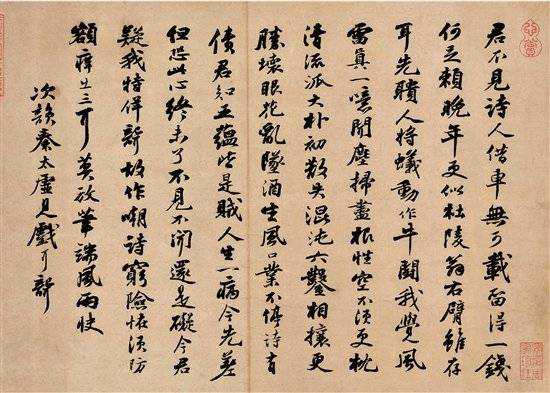 君不見詩人借車無可載留得一錢
何足賴晚年更似杜陵翁右臂雖存
耳先聵人將蟻動作牛鬭我覺風
雷真一噫聞塵掃盡根性空不須更枕
清流派大朴初散失混沌六鑿相攘更
勝壞眼花亂墜酒生風口業不停詩有
債君知五蘊皆是賊人生一病今先差
但恐此心終未了不見不聞還是礙今君
疑我特佯聾故作嘲詩窮險怪須防
額痒出三耳莫放筆端風雨快
次韻秦太虛見戲耳聾